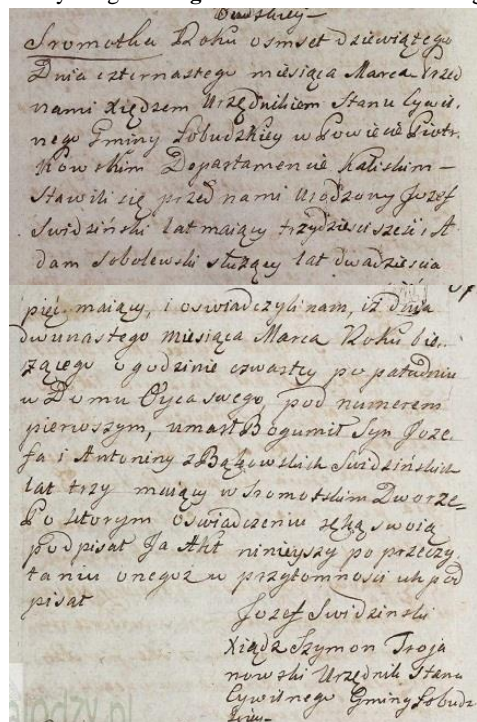 Sromotka Roku osmset dziewiątego
Dnia czternastego miesiąca Marca Przed
nami Xiędzem Urzędnikiem Stanu Cywil-
nego Gminy Łobudzkiey w Powiecie Piotr-
kowskim Departamencie Kaliskim –
Stawili się przed nami Urodzony Jozef
Swidziński lat maiący trzydzieści sześć i A
dam Sobolewski służący lat dwadziescia
pięć maiący, i oswiadczyli nam, iż dnia
dwunastego miesiąca Marca Roku bie-
żącego o godzinie czwartey po południu
w Domu Oyca swego pod numerem
pierwszym, umarł Bogumił Syn Joze-
fa i Antoniny z Bąkowskich Swidzińskich
lat trzy maiący w Sromotskim Dworze.
Po ktorym oswiadczeniu ręką swoią
podpisał Ja Akt ninieyszy po przeczy
taniu onegoz w przytomności ich pod
pisał
Jozef Swidzinski
Xiądz Szymon Troja
nowski Urzędnik Stanu
Cywilnego Gminy Łobudz